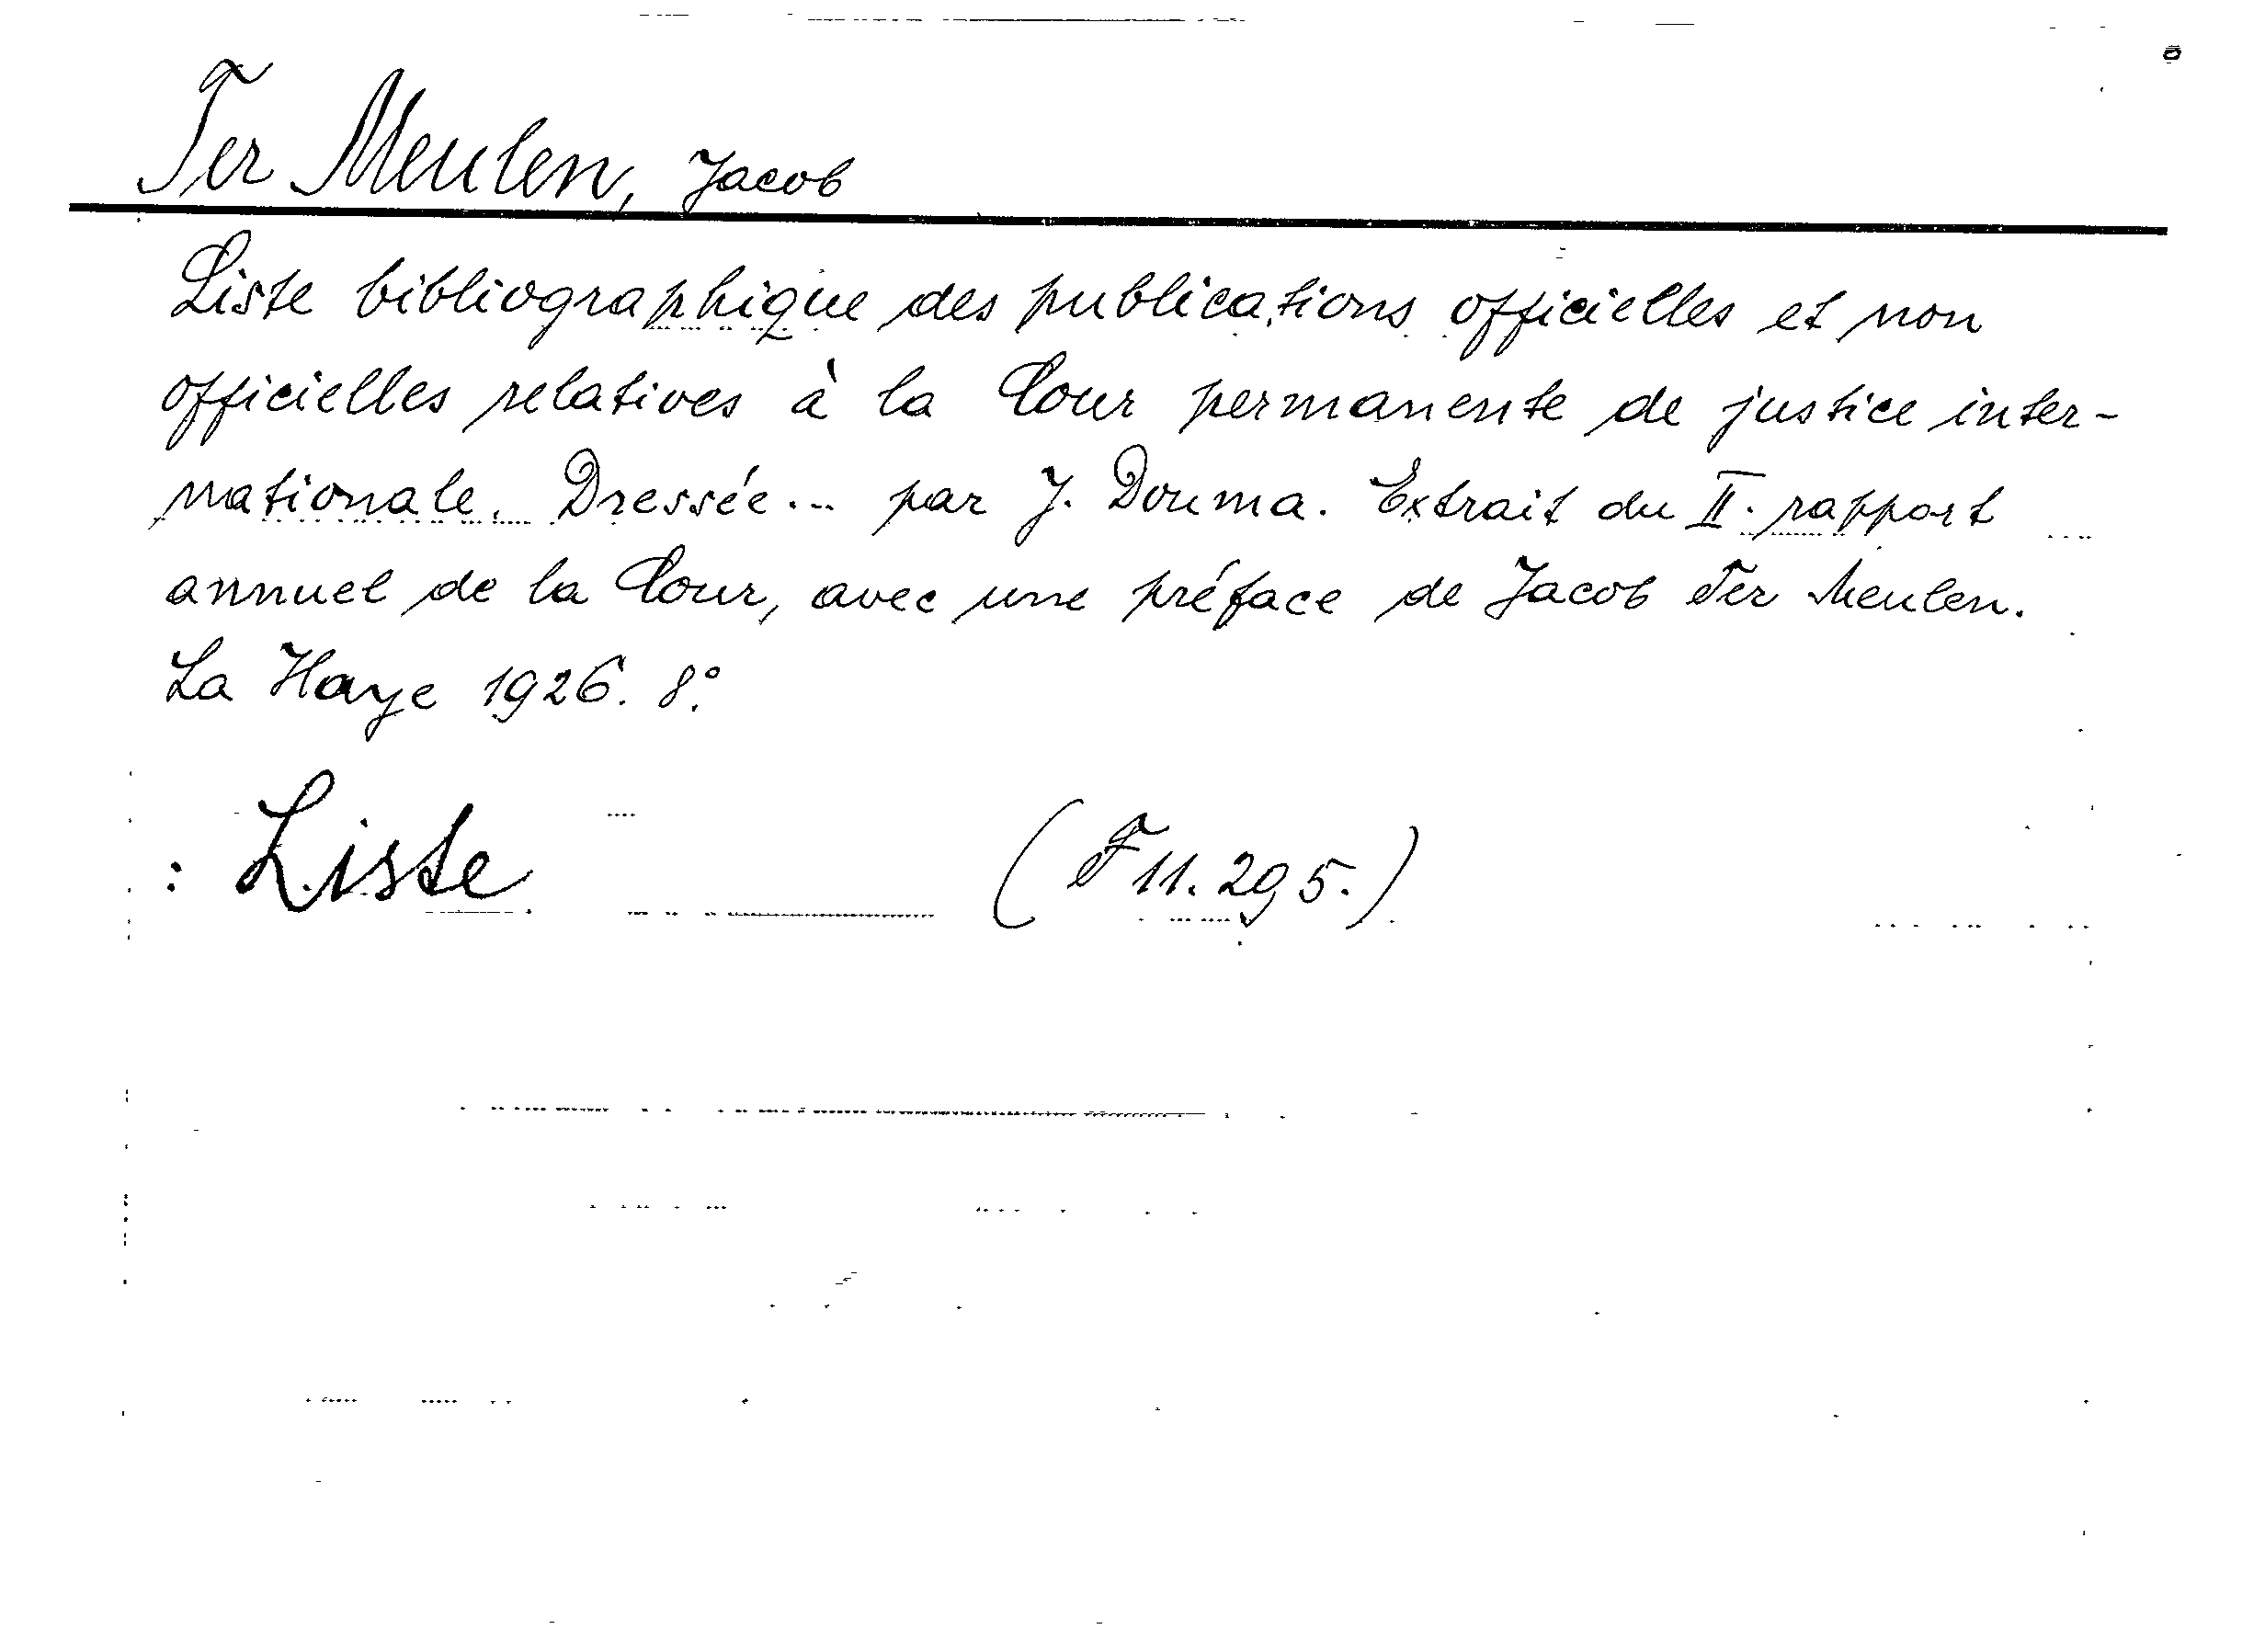 Ter Meulen, Jacob
Liste bibliographique des publications officielles et non
officielles relatives à la Cour permanente de justice inter-
nationale. Dressée... par J. Douma. Extrait du II. rapport
annuel de la Cour, avec une préface de Jacob Ter Meulen.
La Haye 1926. 8°.
: Liste (F 11.295.)